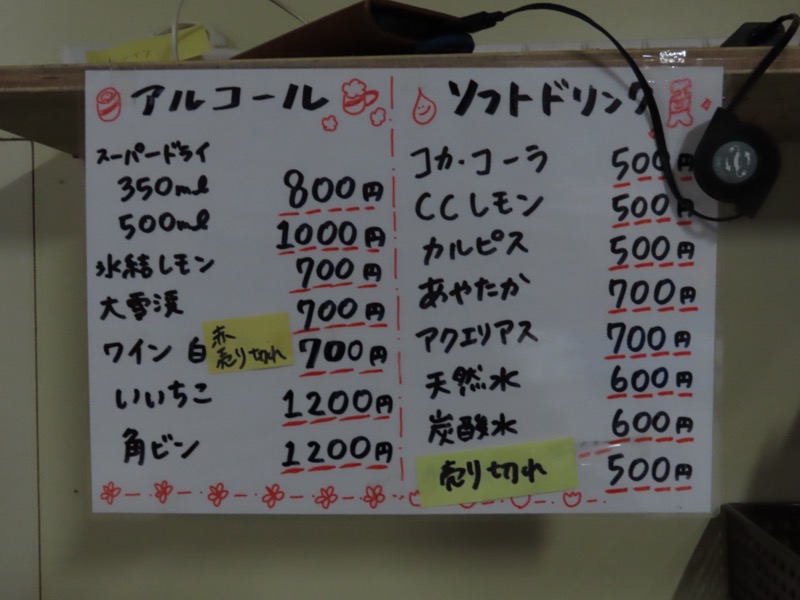 アルコール
スーパードライ
350ml 800円
500ml 1000円
氷結レモン 700円
大雪渓 700円
ワイン 白 赤 売り切れ 700円
いいちこ 1200円
角ビン 1200円
ソフトドリンク
コカ・コーラ 500円
CCレモン 500円
カルピス 500円
あやたか 700円
アクエリアス 700円
天然水 600円
炭酸水 600円
売り切れ 500円